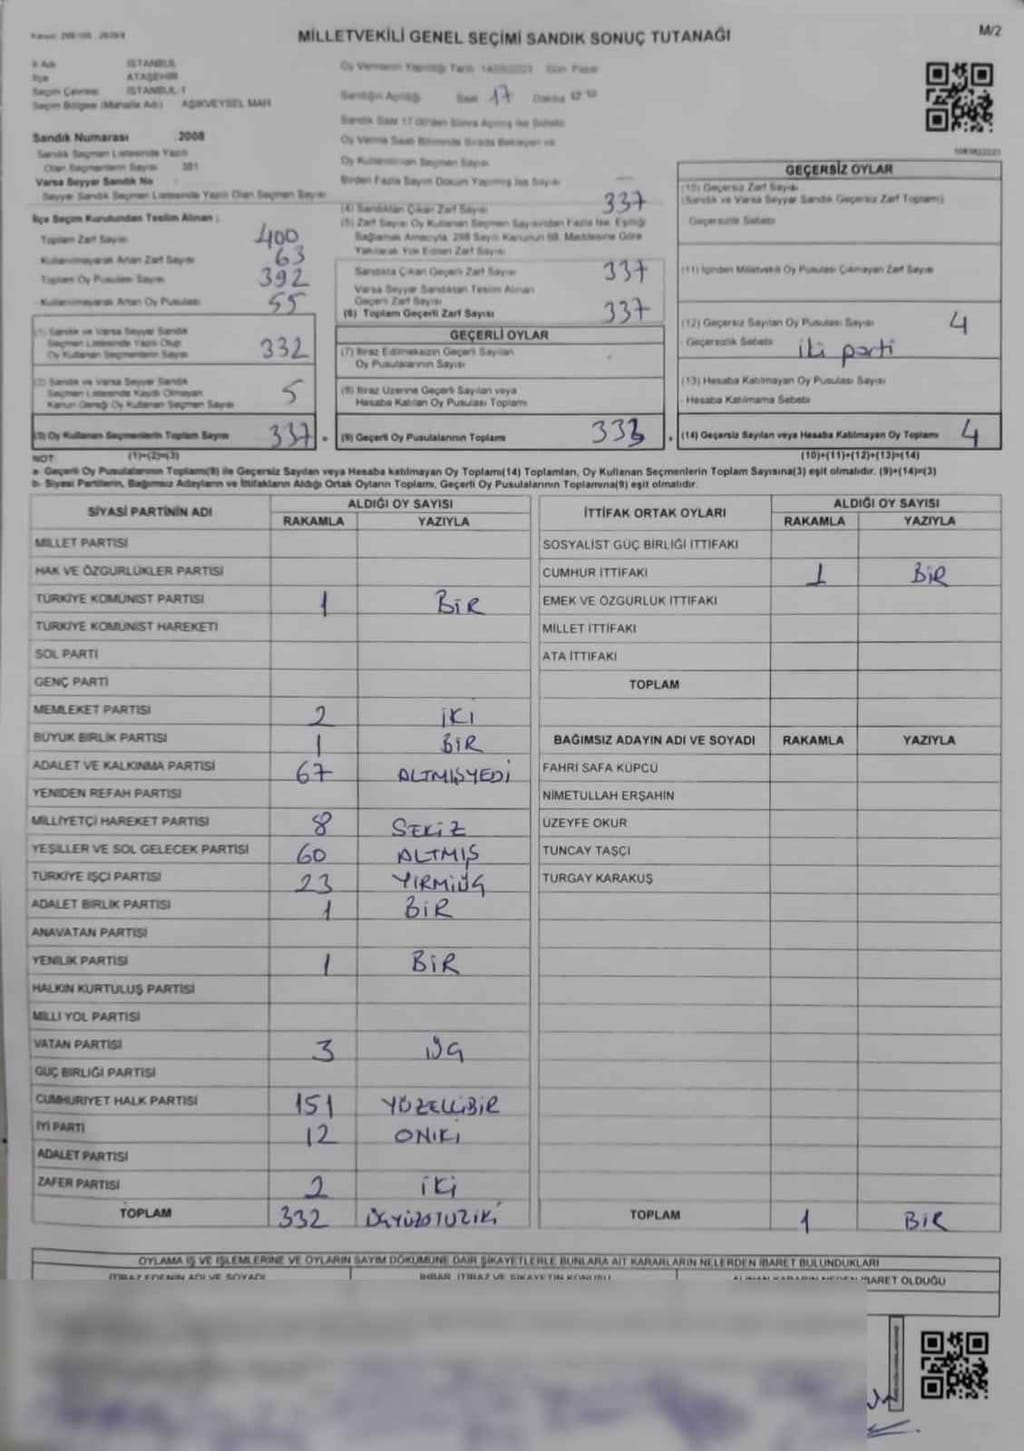 MİLLETVEKİLİ GENEL SEÇİMİ SANDIK SONUÇ TUTANAĞI
M/2
İl Adı İSTANBUL
İlçe ATAŞEHİR
Seçim Çevresi İSTANBUL-1
Seçim Bölgesi (Mahalle Adı) AŞIKVEYSEL MAH
Sandık Numarası 2008
Sandık Seçmen Listesinde Yazılı
Olan Seçmenlerin Sayısı 381
Varsa Seyyar Sandık No
Seyyar Sandık Seçmen Listesinde Yazılı Olan Seçmen Sayısı
İlçe Seçim Kurulundan Teslim Alınan :
Toplam Zarf Sayısı 400
Kullanılmayarak Artan Zarf Sayısı 63
Toplam Oy Pusulası Sayısı 392
Kullanılmayarak Artan Oy Pusulası 55
(1) Sandık ve Varsa Seyyar Sandık
Seçmen Listesinde Yazılı Olup
Oy Kullanan Seçmenlerin Sayısı 332
(2) Sandık ve Varsa Seyyar Sandık
Seçmen Listesinde Kayıtlı Olmayan
Kanun Gereği Oy Kullanan Seçmen Sayısı 5
(3) Oy Kullanan Seçmenlerin Toplam Sayısı 337
(1)+(2)=(3)
Oy Vermenin Yapıldığı Tarih 14/05/2023 Gün Pazar
Sandığın Açıldığı Saat 17 Dakika
Oy Kullandırılan Seçmen Sayısı
Birden Fazla Sayım Döküm Yapılmış İse Sayısı
(4) Sandıktan Çıkan Zarf Sayısı 337
(5) Zarf Sayısı Oy Kullanan Seçmen Sayısından Fazla İse, Eşitliği
Sağlamak Amacıyla, 298 Sayılı Kanunun 98. Maddesine Göre
Yakılarak Yok Edilen Zarf Sayısı
Sandıkta Çıkan Geçerli Zarf Sayısı 337
Varsa Seyyar Sandıktan Teslim Alınan
Geçerli Zarf Sayısı
(6) Toplam Geçerli Zarf Sayısı 337
GEÇERLİ OYLAR
(7) İtiraz Edilmeksizin Geçerli Sayılan
Oy Pusulalarının Sayısı
(8) İtiraz Üzerine Geçerli Sayılan veya
Hesaba Katılan Oy Pusulası Toplamı
(9) Geçerli Oy Pusulalarının Toplamı 333
GEÇERSİZ OYLAR
(10) Geçersiz Zarf Sayısı
(Sandık ve Varsa Seyyar Sandık Geçersiz Zarf Toplamı)
Geçersizlik Sebebi
(11) İçinden Milletvekili Oy Pusulası Çıkmayan Zarf Sayısı
(12) Geçersiz Sayılan Oy Pusulası Sayısı 4
Geçersizlik Sebebi iki parti
(13) Hesaba Katılmayan Oy Pusulası Sayısı
Hesaba Katılmama Sebebi
(14) Geçersiz Sayılan veya Hesaba Katılmayan Oy Toplamı 4
(10)+(11)+(12)+(13)=(14)
NOT:
a- Geçerli Oy Pusulalarının Toplamı(9) ile Geçersiz Sayılan veya Hesaba katılmayan Oy Toplamı(14) Toplamları, Oy Kullanan Seçmenlerin Toplam Sayısına(3) eşit olmalıdır. (9)+(14)=(3)
b- Siyasi Partilerin, Bağımsız Adayların ve İttifakların Aldığı Ortak Oyların Toplamı, Geçerli Oy Pusulalarının Toplamına(9) eşit olmalıdır.
SİYASİ PARTİNİN ADI
ALDIĞI OY SAYISI
RAKAMLA YAZIYLA
MİLLET PARTİSİ
HAK VE ÖZGÜRLÜKLER PARTİSİ
TÜRKİYE KOMÜNİST PARTİSİ 1 BİR
TÜRKİYE KOMÜNİST HAREKETİ
SOL PARTİ
GENÇ PARTİ
MEMLEKET PARTİSİ 2 İKİ
BÜYÜK BİRLİK PARTİSİ 1 BİR
ADALET VE KALKINMA PARTİSİ 67 ALTMIŞYEDİ
YENİDEN REFAH PARTİSİ
MİLLİYETÇİ HAREKET PARTİSİ 8 SEKİZ
YEŞİLLER VE SOL GELECEK PARTİSİ 60 ALTMIŞ
TÜRKİYE İŞÇİ PARTİSİ 23 YİRMİÜÇ
ADALET BİRLİK PARTİSİ 1 BİR
ANAVATAN PARTİSİ
YENİLİK PARTİSİ 1 BİR
HALKIN KURTULUŞ PARTİSİ
MİLLİ YOL PARTİSİ
VATAN PARTİSİ 3 ÜÇ
GÜÇ BİRLİĞİ PARTİSİ
CUMHURİYET HALK PARTİSİ 151 YÜZELLİBİR
İYİ PARTİ 12 ONİKİ
ADALET PARTİSİ
ZAFER PARTİSİ 2 İKİ
TOPLAM 332 ÜÇYÜZOTUZİKİ
İTTİFAK ORTAK OYLARI
ALDIĞI OY SAYISI
RAKAMLA YAZIYLA
SOSYALİST GÜÇ BİRLİĞİ İTTİFAKI
CUMHUR İTTİFAKI 1 BİR
EMEK VE ÖZGÜRLÜK İTTİFAKI
MİLLET İTTİFAKI
ATA İTTİFAKI
TOPLAM
BAĞIMSIZ ADAYIN ADI VE SOYADI RAKAMLA YAZIYLA
FAHRİ SAFA KÜPCÜ
NİMETULLAH ERŞAHİN
ÜZEYFE OKUR
TUNCAY TAŞÇI
TURGAY KARAKUŞ
TOPLAM 1 BİR
OYLAMA İŞ VE İŞLEMLERİNE VE OYLARIN SAYIM DÖKÜMÜNE DAİR ŞİKAYETLERLE BUNLARA AİT KARARLARIN NELERDEN İBARET BULUNDUKLARI
İTİRAZ EDENİN ADI VE SOYADI
İHBAR, İTİRAZ VE ŞİKAYETİN KONUSU
ALINAN KARARIN NEDEN İBARET OLDUĞU